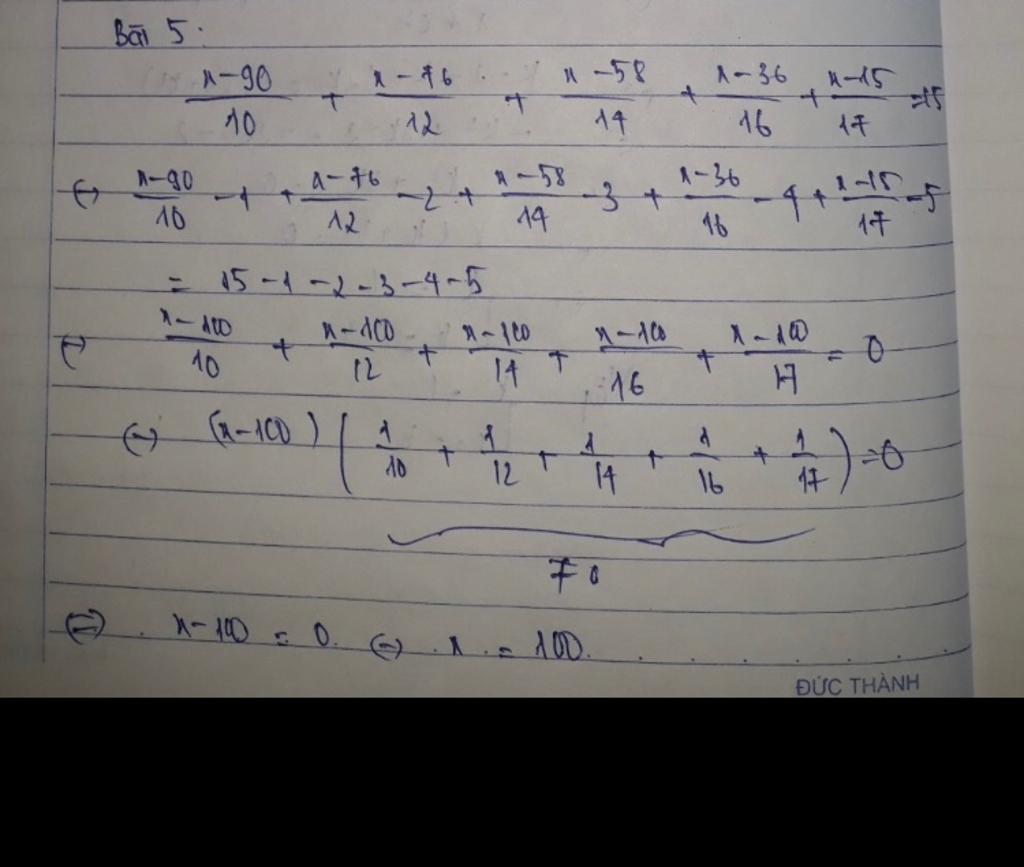 Bài 5:
x-90/10 + x-76/12 + x-58/14 + x-36/16 + x-15/17 = 15
(-) x-90/10 - 1 + x-76/12 - 2 + x-58/14 - 3 + x-36/16 - 4 + x-15/17 - 5
= 15 - 1 - 2 - 3 - 4 - 5
(-) x-100/10 + x-100/12 + x-100/14 + x-100/16 + x-100/17 = 0
(-) (x-100) (1/10 + 1/12 + 1/14 + 1/16 + 1/17) = 0
≠ 0
(=) x-100 = 0. (-) x = 100.
ĐỨC THÀNH